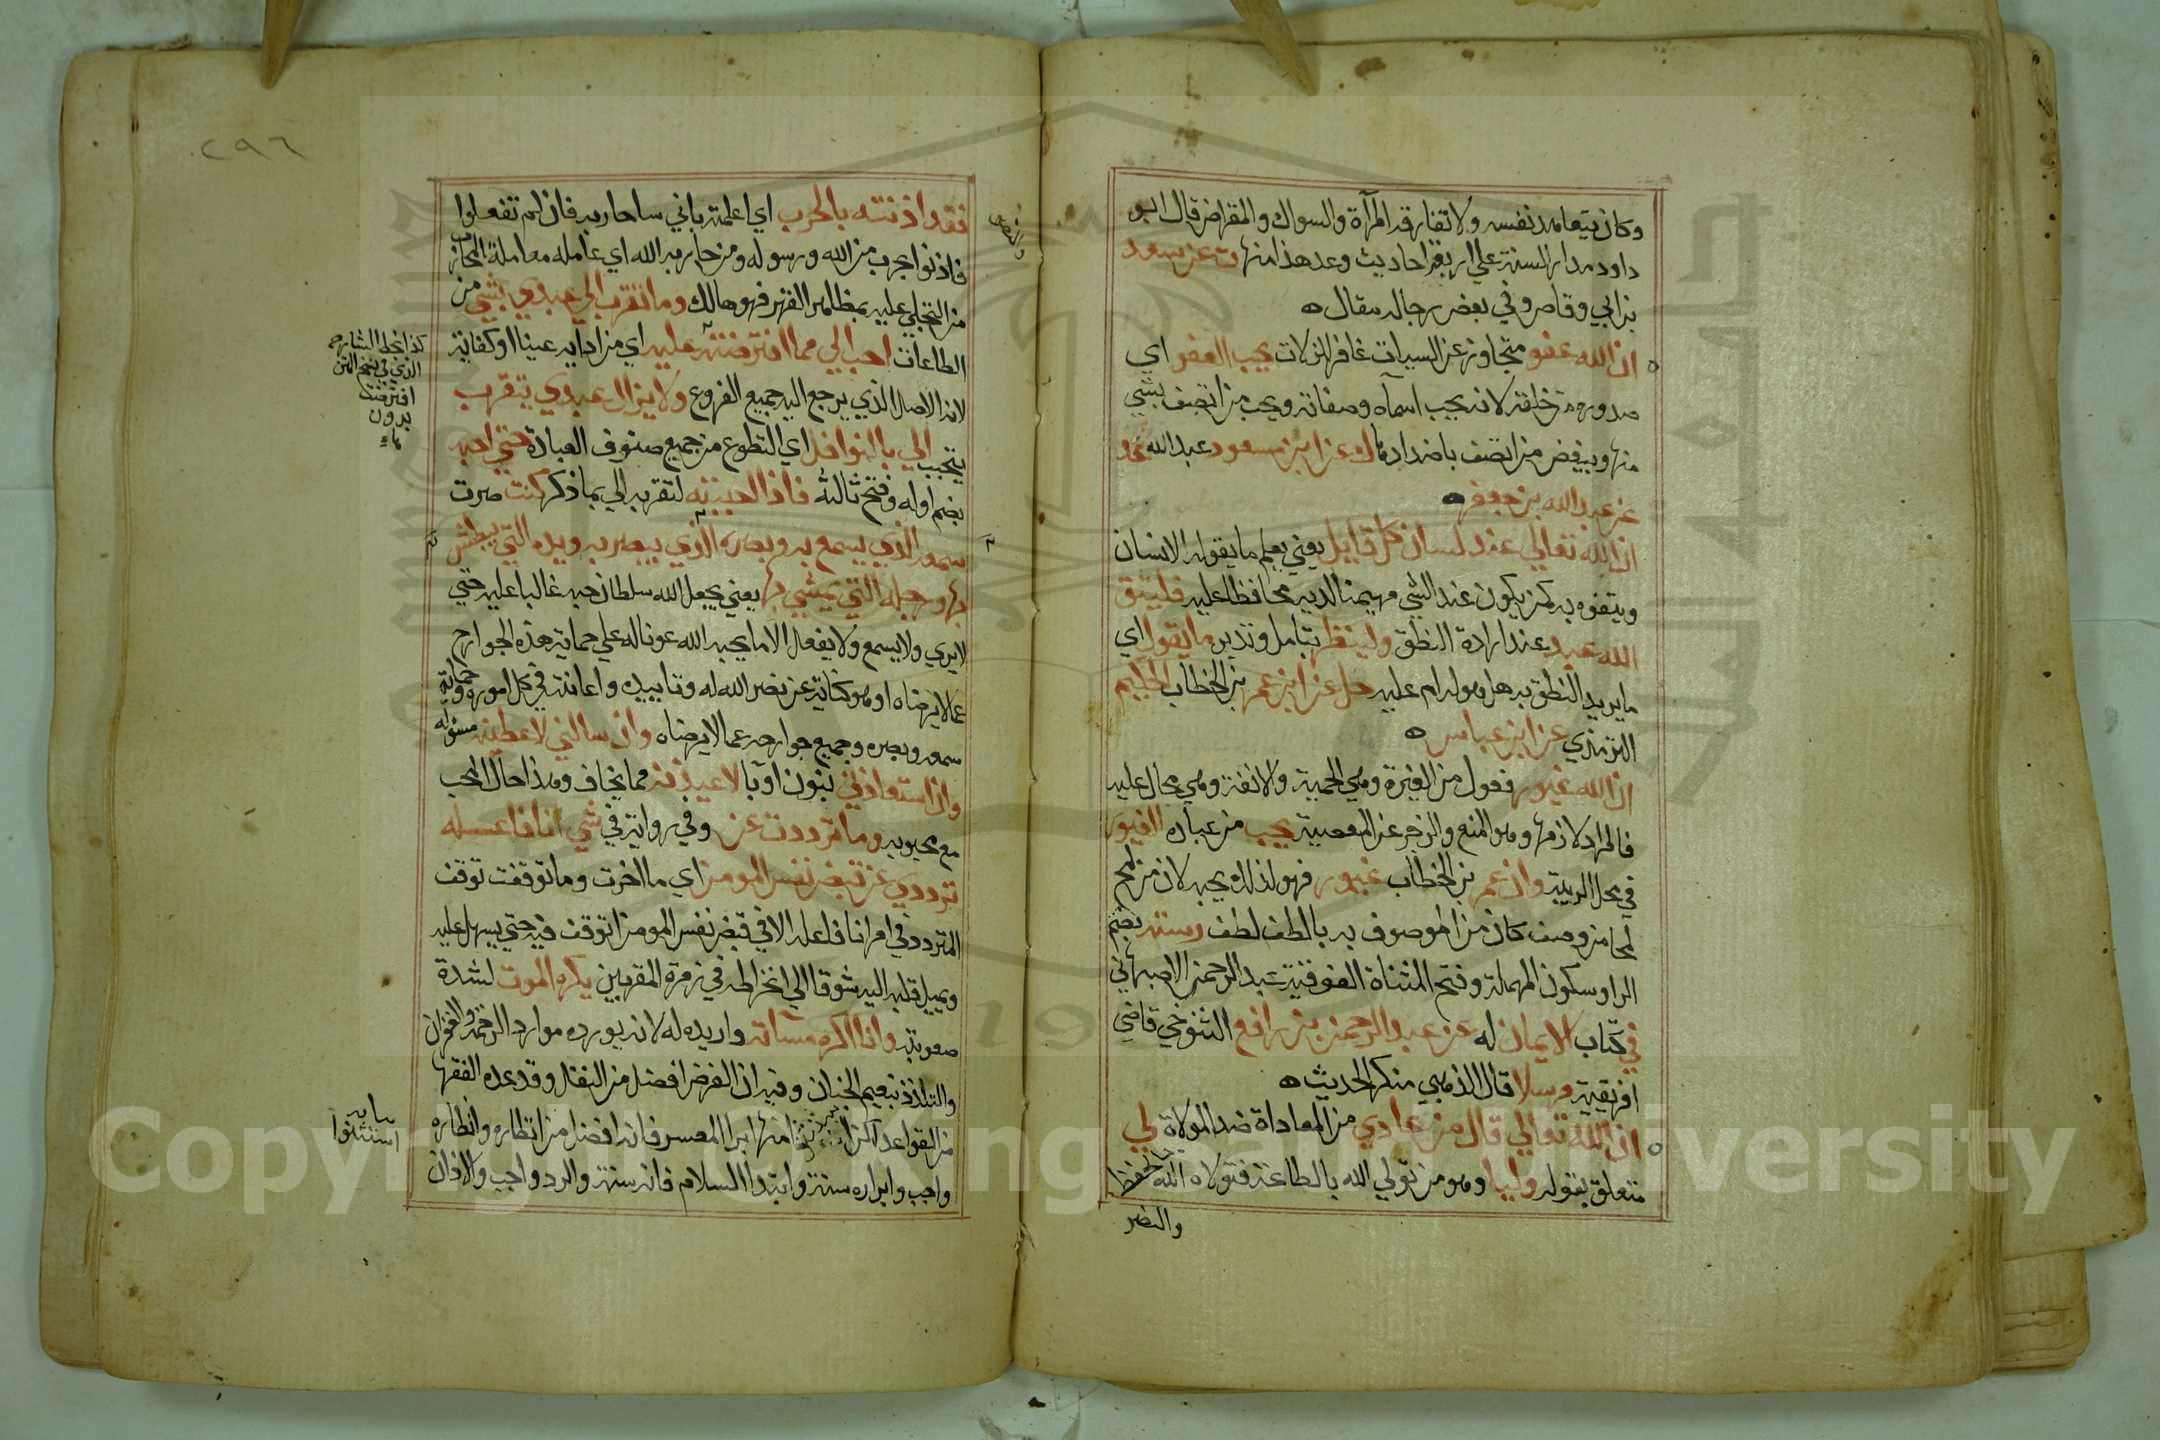 وكان يتعاهد نفسه ولا تفارقه المرآة والسواك والمقراض قال ابو
داود مدار السنة علي اربعة احاديث وعد هذا منها ت عن سعد
بن ابي وقاص وفي بعض رجاله مقال ه
ان الله عفو متجاوز عن السيات غافر الزلات يحب العفو اي
صدوره من خلقه لانه يحب اسماه وصفاته ويحب من اتصف بشي
منها ويبغض من اتصف باضدادها ك عن ابن مسعود عبد الله عد
عن عبد الله بن جعفر ه
ان الله تعالي عند لسان كل قايل يعني يعلم ما يقوله الانسان
ويتفوه به كمن يكون عند الشي مهيمنا لديه محافظا عليه فليتق
الله عبد عند ارادة النطق ولينظر بتامل وتدبر ما يقول اي
ما يريد النطق به هل هو له ام عليه حل عن ابن عمر بن الخطاب الحكيم
الترمذي عن ابن عباس ه
ان الله غيور فعول من الغيرة وهي الحمية والانفة وهي محال عليه
فالمراد لازمها وهو المنع والزجر عن المعصية يحب من عباده الغيور
في محل الريبة وان عمر بن الخطاب غيور فهو لذلك يحبه لان من لمح
لمحا من وصف كان من الموصوف به بالطف لطف رسته بضم
الرا وسكون المهملة وفتح المثناة الفوقية عبد الرحمن الاصبهاني
في كتاب الايمان له عن عبد الرحمن بن رافع التنوخي قاضي
افريقية مرسلا قال الذهبي منكر الحديث ه
ان الله تعالي قال من عادي من المعاداة ضد الموالاة لي
متعلق بقوله وليا وهو من تولي الله بالطاعة فتولاه الله بالحفظ
والنصر
٢٩٦
والنصر
فقد اذنته بالحرب اي اعلمته باني ساحاربه فان لم تفعلوا
فاذنوا بحرب من الله ورسوله ومن حاربه الله اي عامله معاملة المحارب
من التجلي عليه بمظاهر القهر فهو هالك وما تقرب الي عبدي بشي من
الطاعات احب الي مما افترضته عليه اي من ادايه عينا او كفاية
لانه الاصل الذي يرجع اليه جميع الفروع ولا يزال عبدي يتقرب
يتحبب الي بالنوافل اي التطوع من جميع صنوف العبادة حتي احبه
بضم اوله وفتح ثالثه فاذا احببته لتقربه الي بما ذكر كنت صرت
سمعه الذي يسمع به وبصره الذي يبصر به ويده التي يبطش
بها ورجله التي يمشي بها يعني يجعل الله سلطان حبه غالبا عليه حتي
لا يري ولا يسمع ولا يفعل الا ما يحبه الله عونا له علي حماية هذه الجوارح
عما لا يرضاه او هو كناية عن نصر الله له وتاييده واعانته في كل اموره وحماية
سمعه وبصره وجميع جوارحه عما لا يرضاه وان سالني لاعطينه مسئوله
وان استعاذني بنون او با لاعيذنه مما يخاف وهذا حال المحب
مع محبوبه وما ترددت عن وفي رواية في شي انا فاعله
ترددي عن قبض نفس المومن اي ما اخرت وما توقفت توقف
المتردد في امر انا فاعله الا في قبض نفس المومن اتوقف فيه حتي يسهل عليه
ويميل قلبه اليه شوقا الي انخراطه في زمرة المقربين يكره الموت لشدة
صعوبته وانا اكره مساته واريده له لانه يورده موارد الرحمة والغفران
والتلذذ بنعيم الجنان وفيه ان الفرض افضل من النفل وقد عده الفقها
من القواعد لكن منها ابرا المعسر فانه افضل من انظاره وانظاره
واجب وابراره سنة وابتدا السلام فانه سنة والرد واجب والاذان
كذا بخط الشارح
الذي في نسخ المتن
افترضت
بدون
هاء
استثنوا